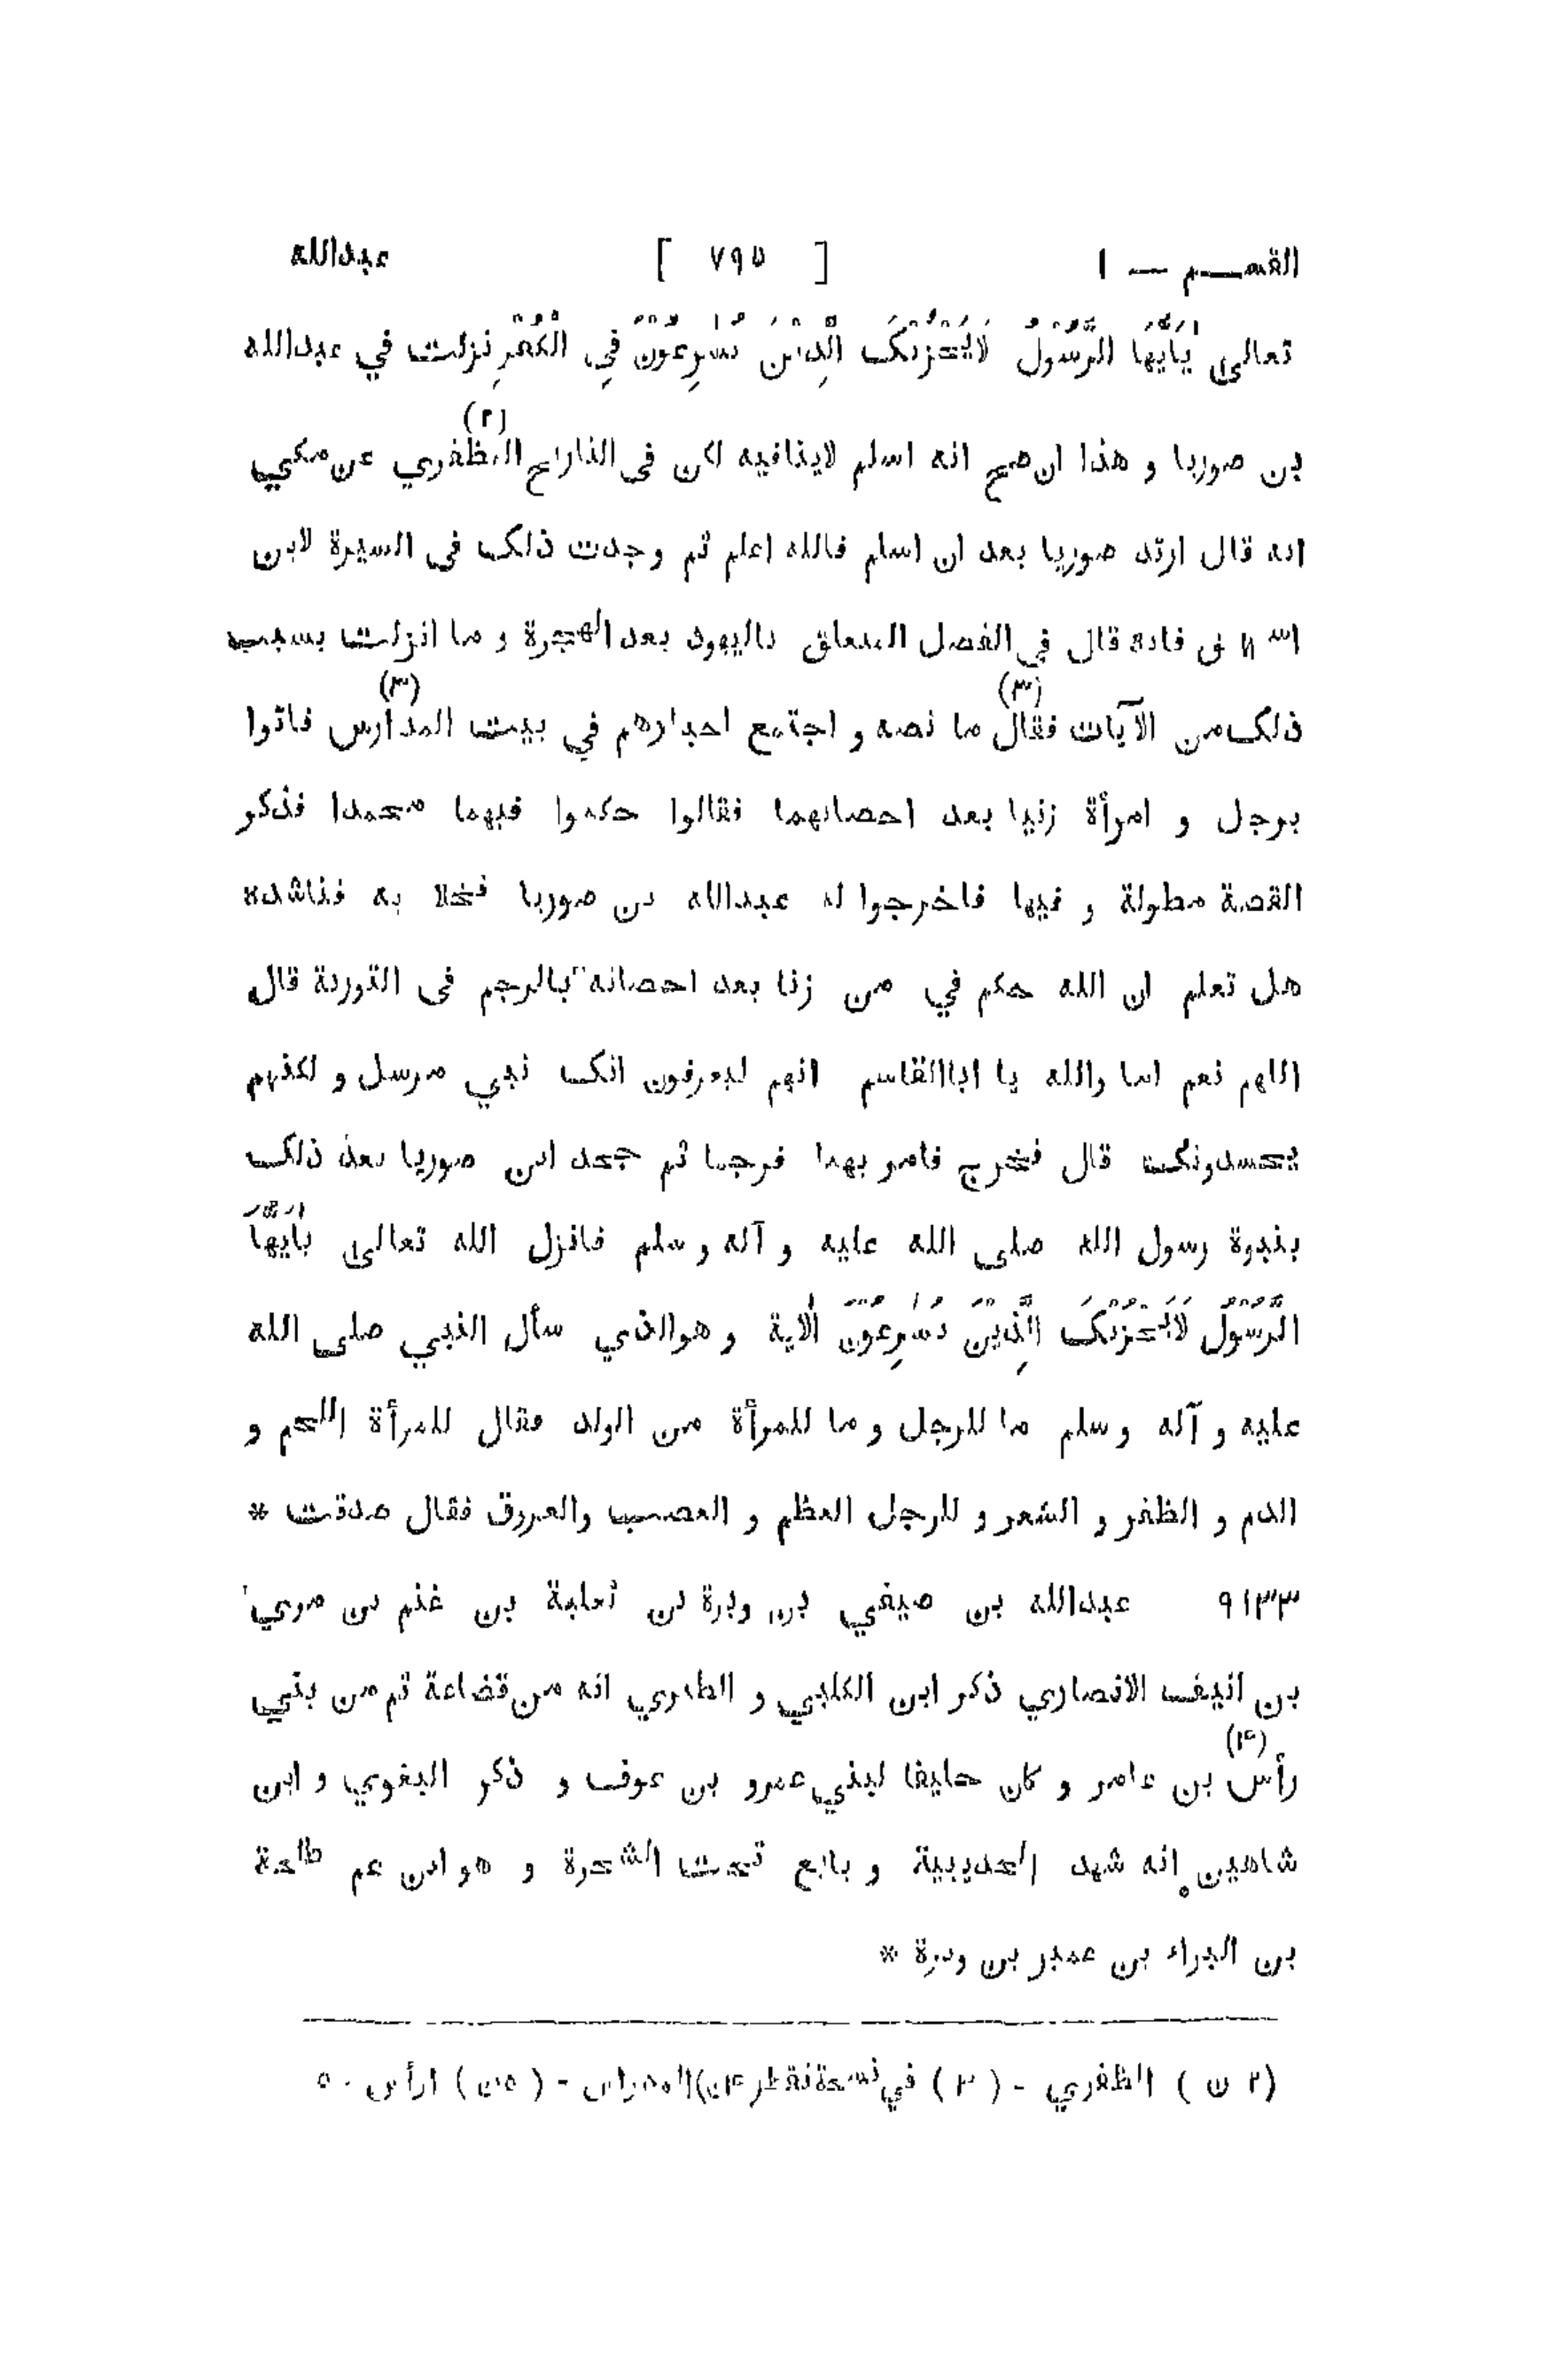 القسم — ١ [ ٧٩٥ ] عبدالله
تعالى يٰاَيُّهَا الرَّسُوْلُ لَايَحْزُنْكَ الَّذِيْنَ يُسٰرِعُوْنَ فِي الْكُفْرِ نزلت في عبدالله
بن صوريا و هذا ان صح انه اسلم لاينافيه لكن فى التاريخ المظفري (٢) عن مكي
انه قال ارتد صوريا بعد ان اسلم فالله اعلم ثم وجدت ذلك فى السيرة لابن
اسحاق فانه قال في الفصل المتعلق باليهود بعد الهجرة و ما انزلت بسبب
ذلك من الآيات فقال (٣) ما نصه و اجتمع احبارهم في بيت المدارس (٣) فاتوا
برجل و امرأة زنيا بعد احصانهما فقالوا حكموا فيهما محمدا فذكر
القصة مطولة و فيها فاخرجوا له عبدالله بن صوريا فخلا به فناشده
هل تعلم ان الله حكم في من زنا بعد احصانه بالرجم فى التورىة قال
اللهم نعم اما والله يا اباالقاسم انهم ليعرفون انك نبي مرسل و لكنهم
يحسدونك قال فخرج فامر بهما فرجما ثم جحد ابن صوريا بعد ذلك
بنبوة رسول الله صلى الله عليه و آله و سلم فانزل الله تعالى يٰاَيُّهَا
الرَّسُوْلُ لَايَحْزُنْكَ الَّذِيْنَ يُسٰرِعُوْنَ الاية و هوالذي سأل النبي صلى الله
عليه و آله و سلم ما للرجل و ما للمرأة من الولد فقال للمرأة اللحم و
الدم و الظفر و الشعر و للرجل العظم و العصب والعروق فقال صدقت *
٩١٣٣ عبدالله بن صيفي بن وبرة بن ثعلبة بن غنم بن سري
بن انيف الانصاري ذكر ابن الكلبي و الطبري انه من قضاعة ثم من بني
رأس (٤) بن عامر و كان حليفا لبني عمرو بن عوف و ذكر البغوي و ابن
شاهين انه شهد الحديبية و بايع تحت الشجرة و هو ابن عم طلحة
بن البراء بن عمير بن وبرة *
(٢ ن) الظفري - (٣) في نسخة فقط (٤ن) المدراس - (٥ن) اراس ٥